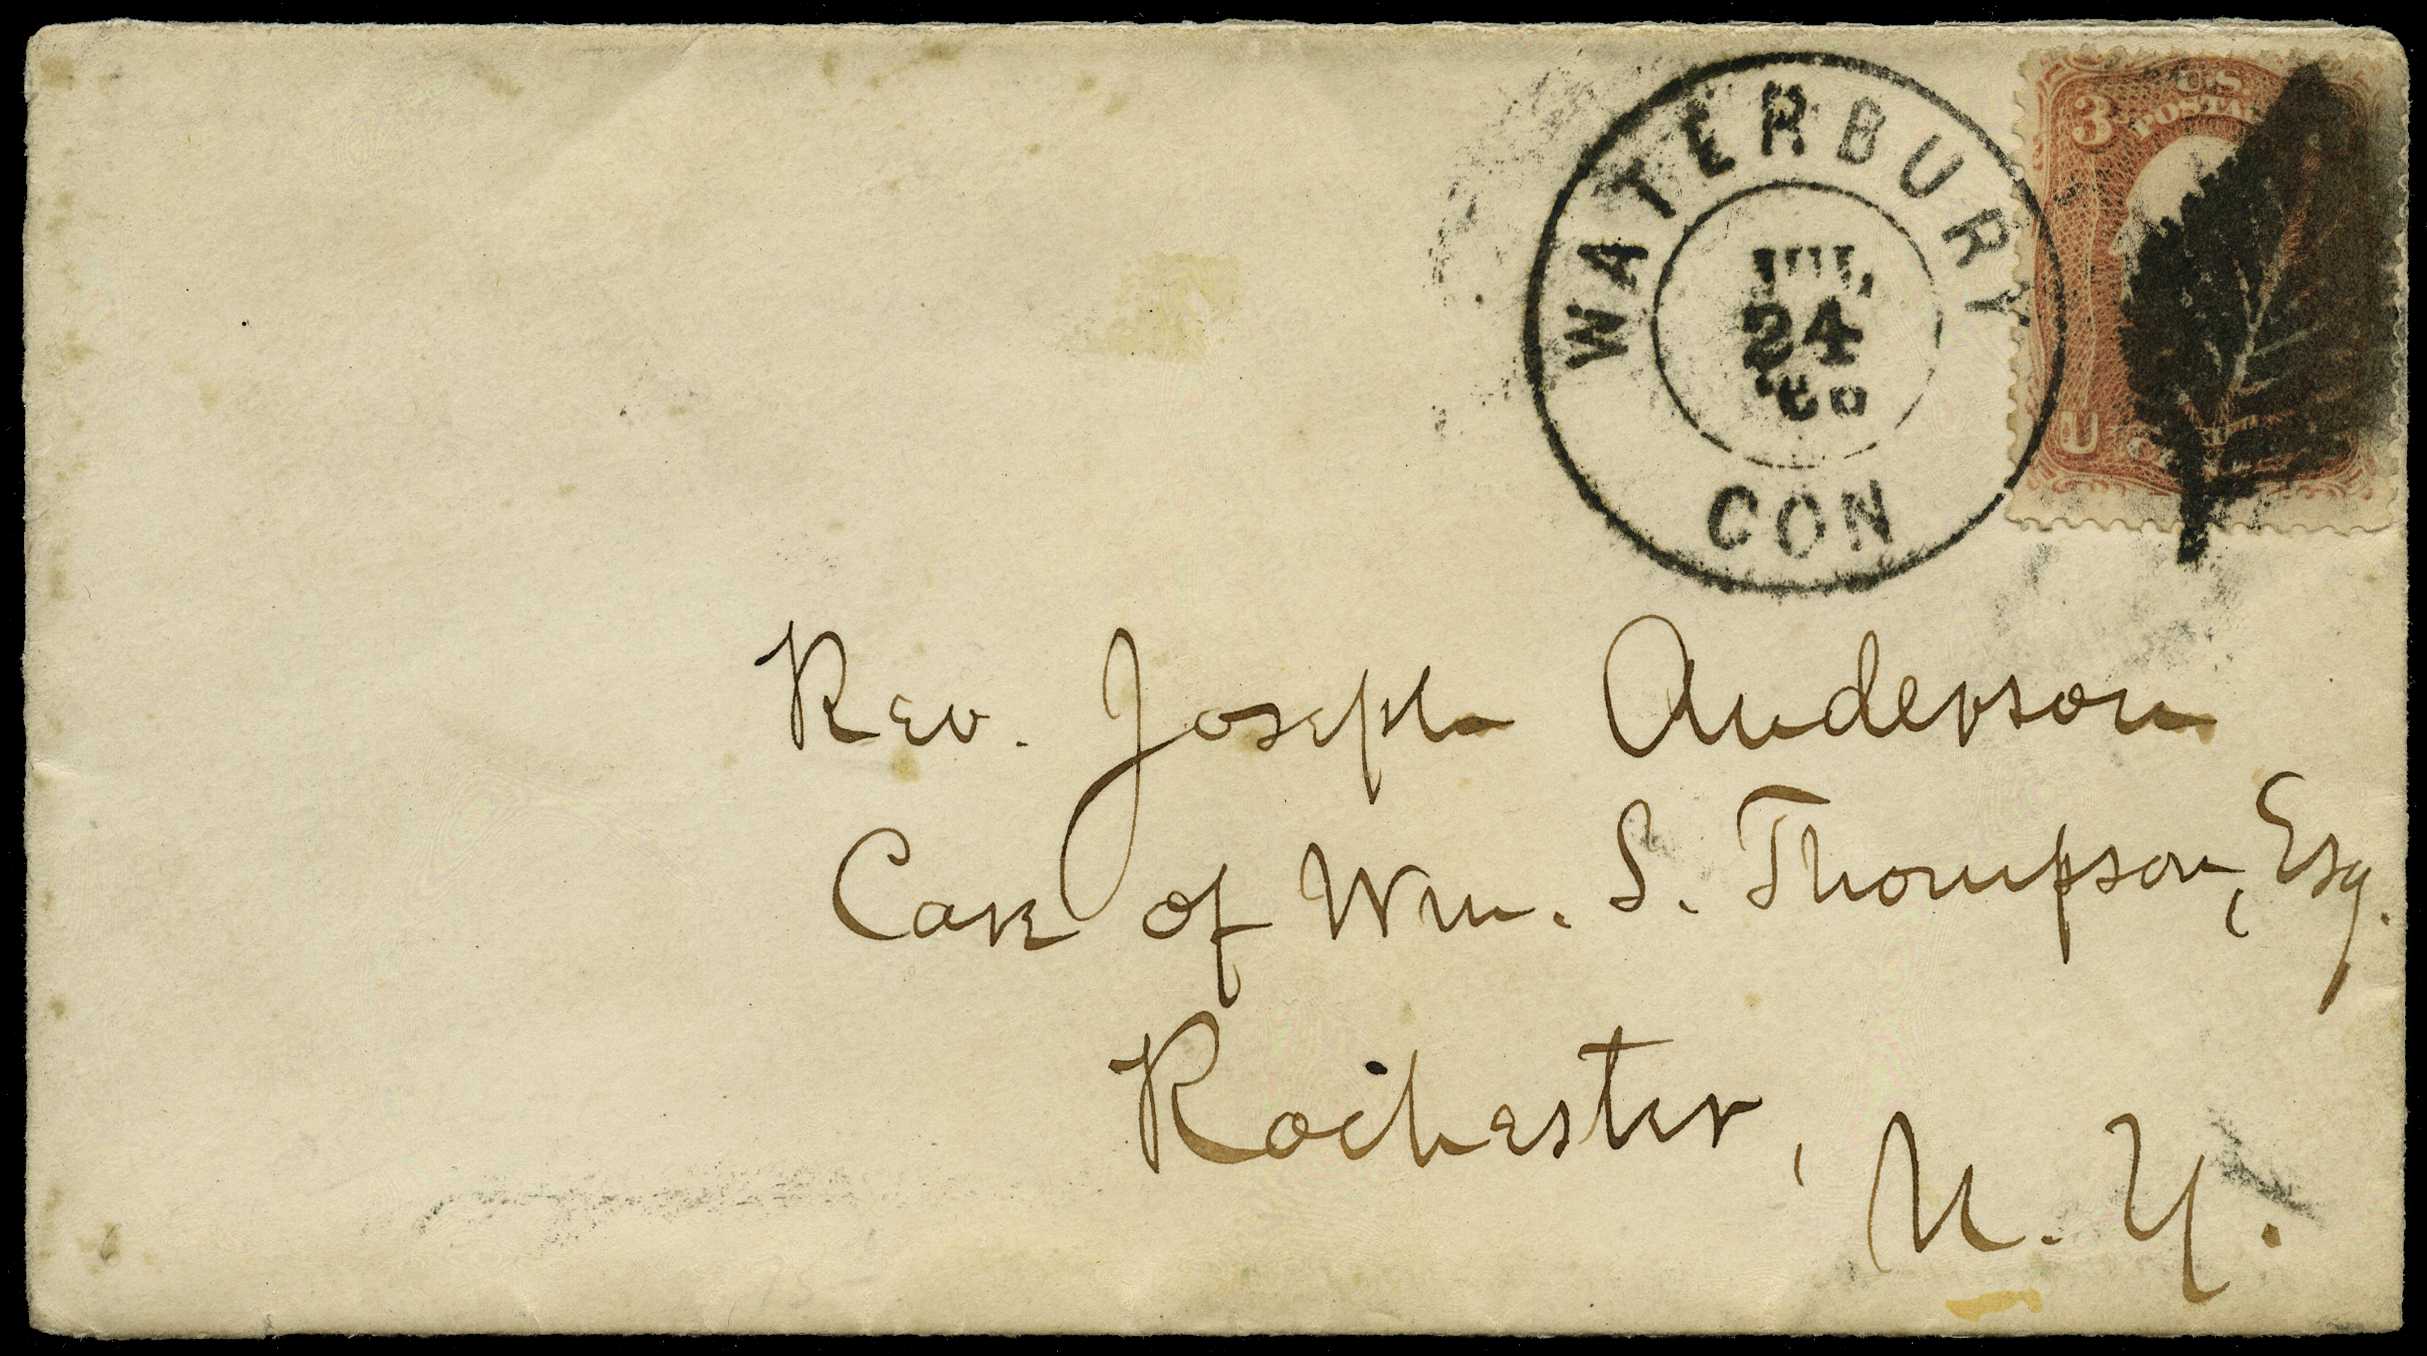 WATERBURY
JUL
24
CON
3
U.S.
POSTA
U
Rev. Joseph Anderson
Care of Wm. S. Thompson, Esq.
Rochester,
N. Y.